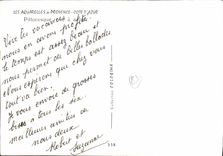 LES AQUARELLES de PROVENCE - COTE D'AZUR
Pittoresque
Vive les vacances !
nous en avons profité
le temps est assez beau et
nous permet de belles ballades
nous espérons que chez vous
tout va bien.
Je vous envoie de grosses
bises à tous les six
meilleures amitiés de
nous deux
Robert et
Suzanne
Collection